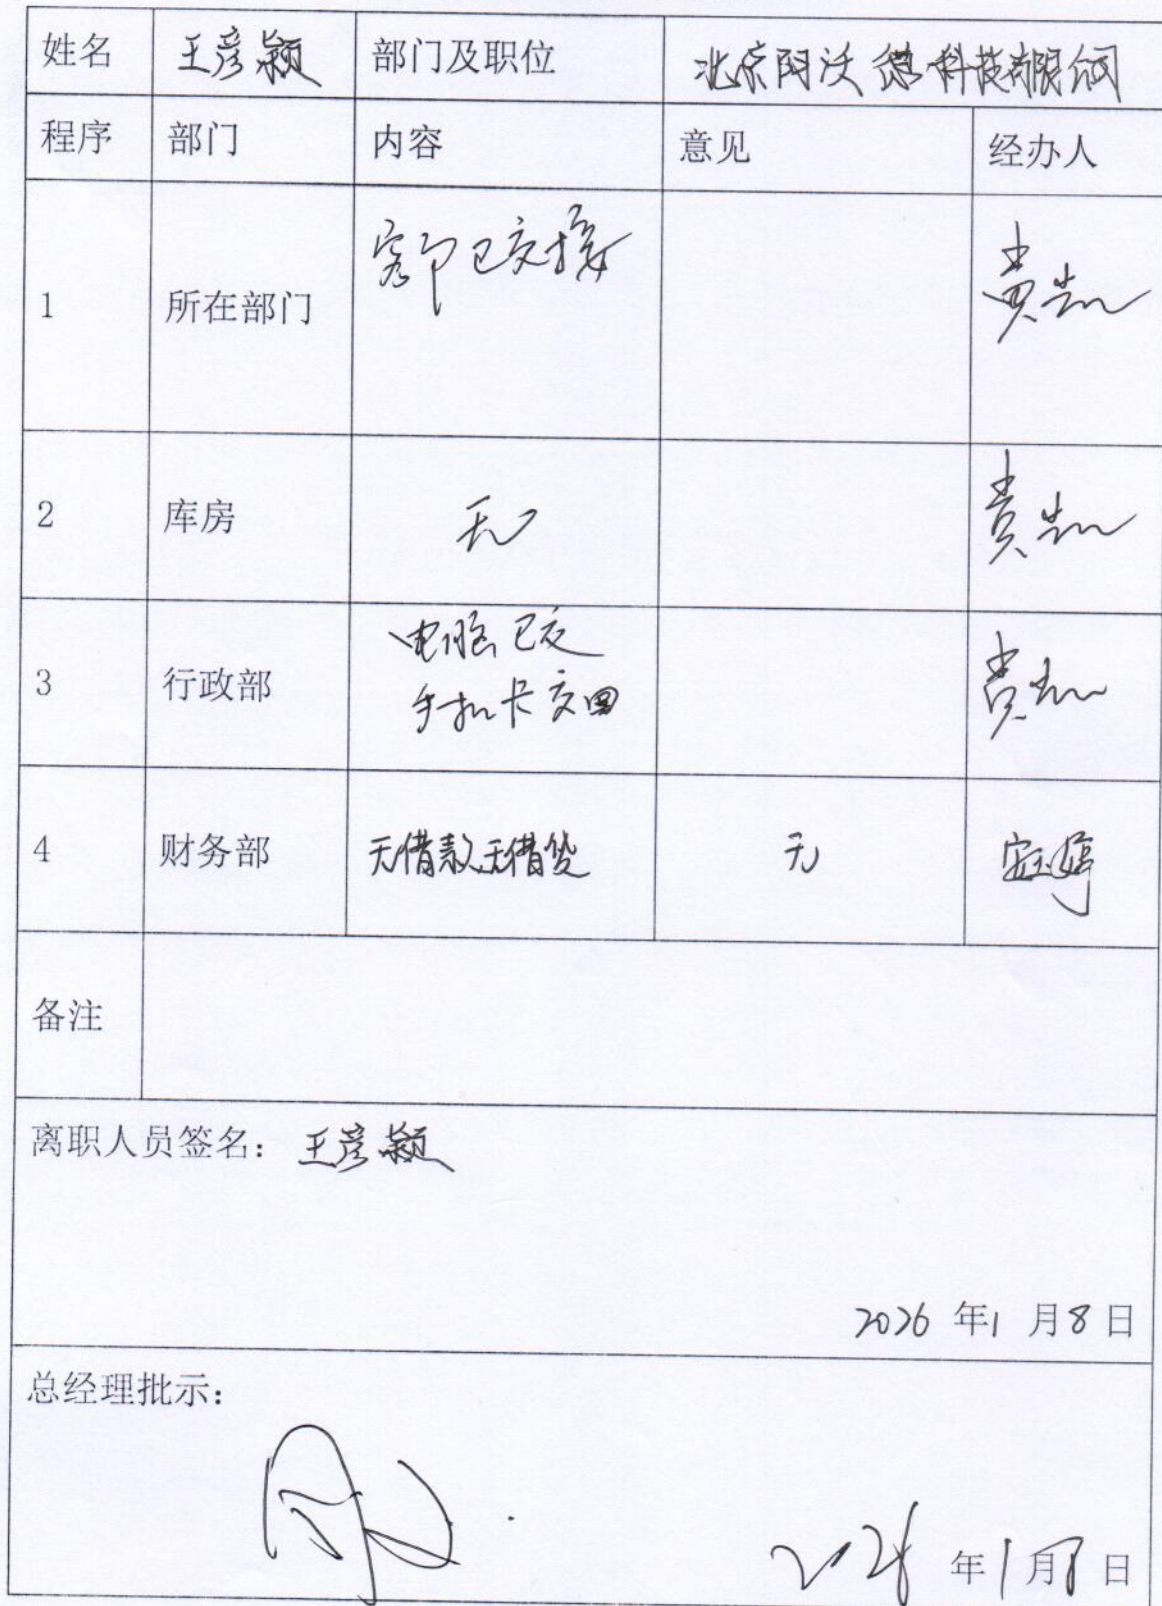 姓名 王彦颖 部门及职位 北京阿沃德科技有限公司
程序 部门 内容 意见 经办人
1 所在部门 客户已交接
2 库房 无
3 行政部 电脑已交
手机卡交回
4 财务部 无借款无借贷 无
备注
离职人员签名: 王彦颖
2026 年1 月8 日
总经理批示:
2026 年1月8日